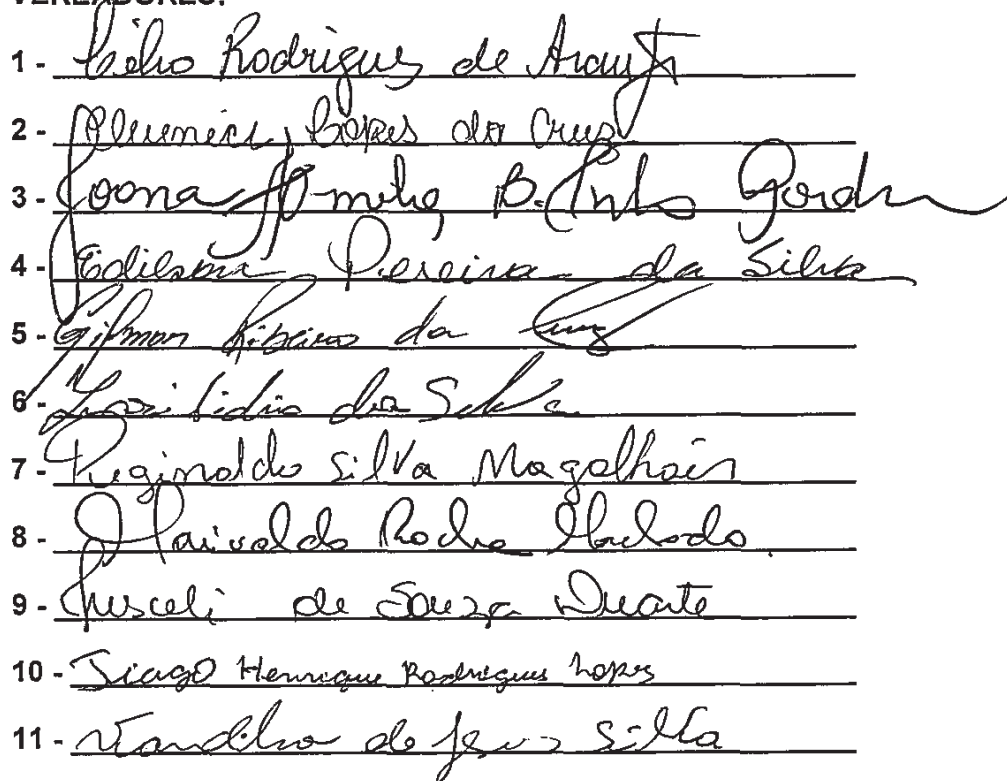 VEREADORES:
1 - Célio Rodrigues de Araujo
2 - Lopes da Cruz
3 - Joana Amélia B. Pinto
4 - Edilson Pereira da Silva
5 - Gilmar Ribeiro da Cruz
6 - da Silva
7 - Reginaldo Silva Magalhães
8 - Marivaldo Rocha
9 - Jusceli de Souza Duarte
10 - Tiago Henrique Rodrigues Lopes
11 - de Jesus Silva